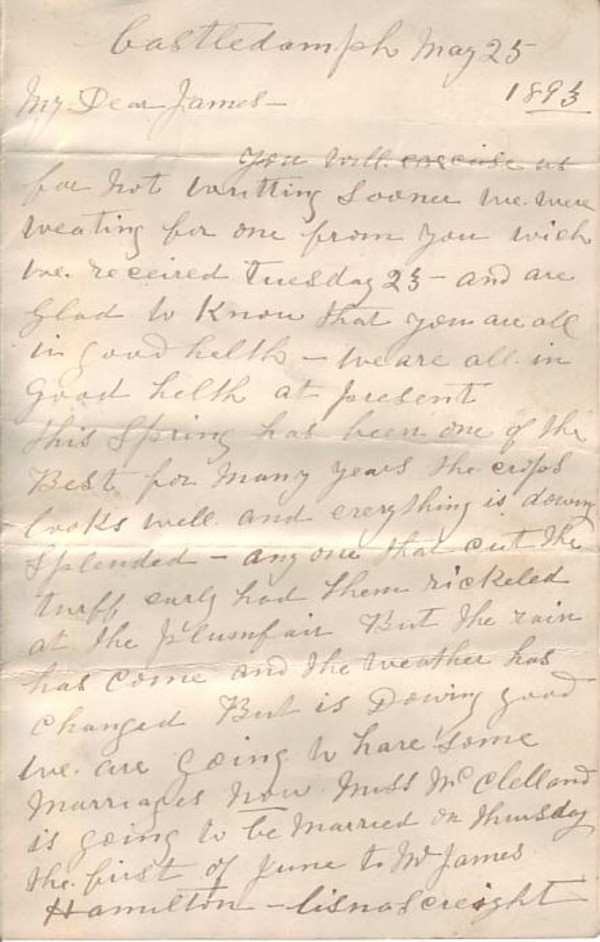 Castledamph May 25
1893
My Dear James —
You will excuse us
for not writting sooner we were
weating for one from you wich
we received Tuesday 23 – and are
Glad to Know that you are all
in good helth – we are all in
Good helth at present
this Spring has been one of the
Best for many years the crops
looks well and erything is dowing
Splended – any one that cut the
turff early had them rickeled
at the Plumfair But the rain
has come and the weather has
changed But is Dowing good
we are going to have some
Marriages now Miss McClelland
is going to be Married on Thursday
the first of June to Mr James
Hamilton – Lisnascreight